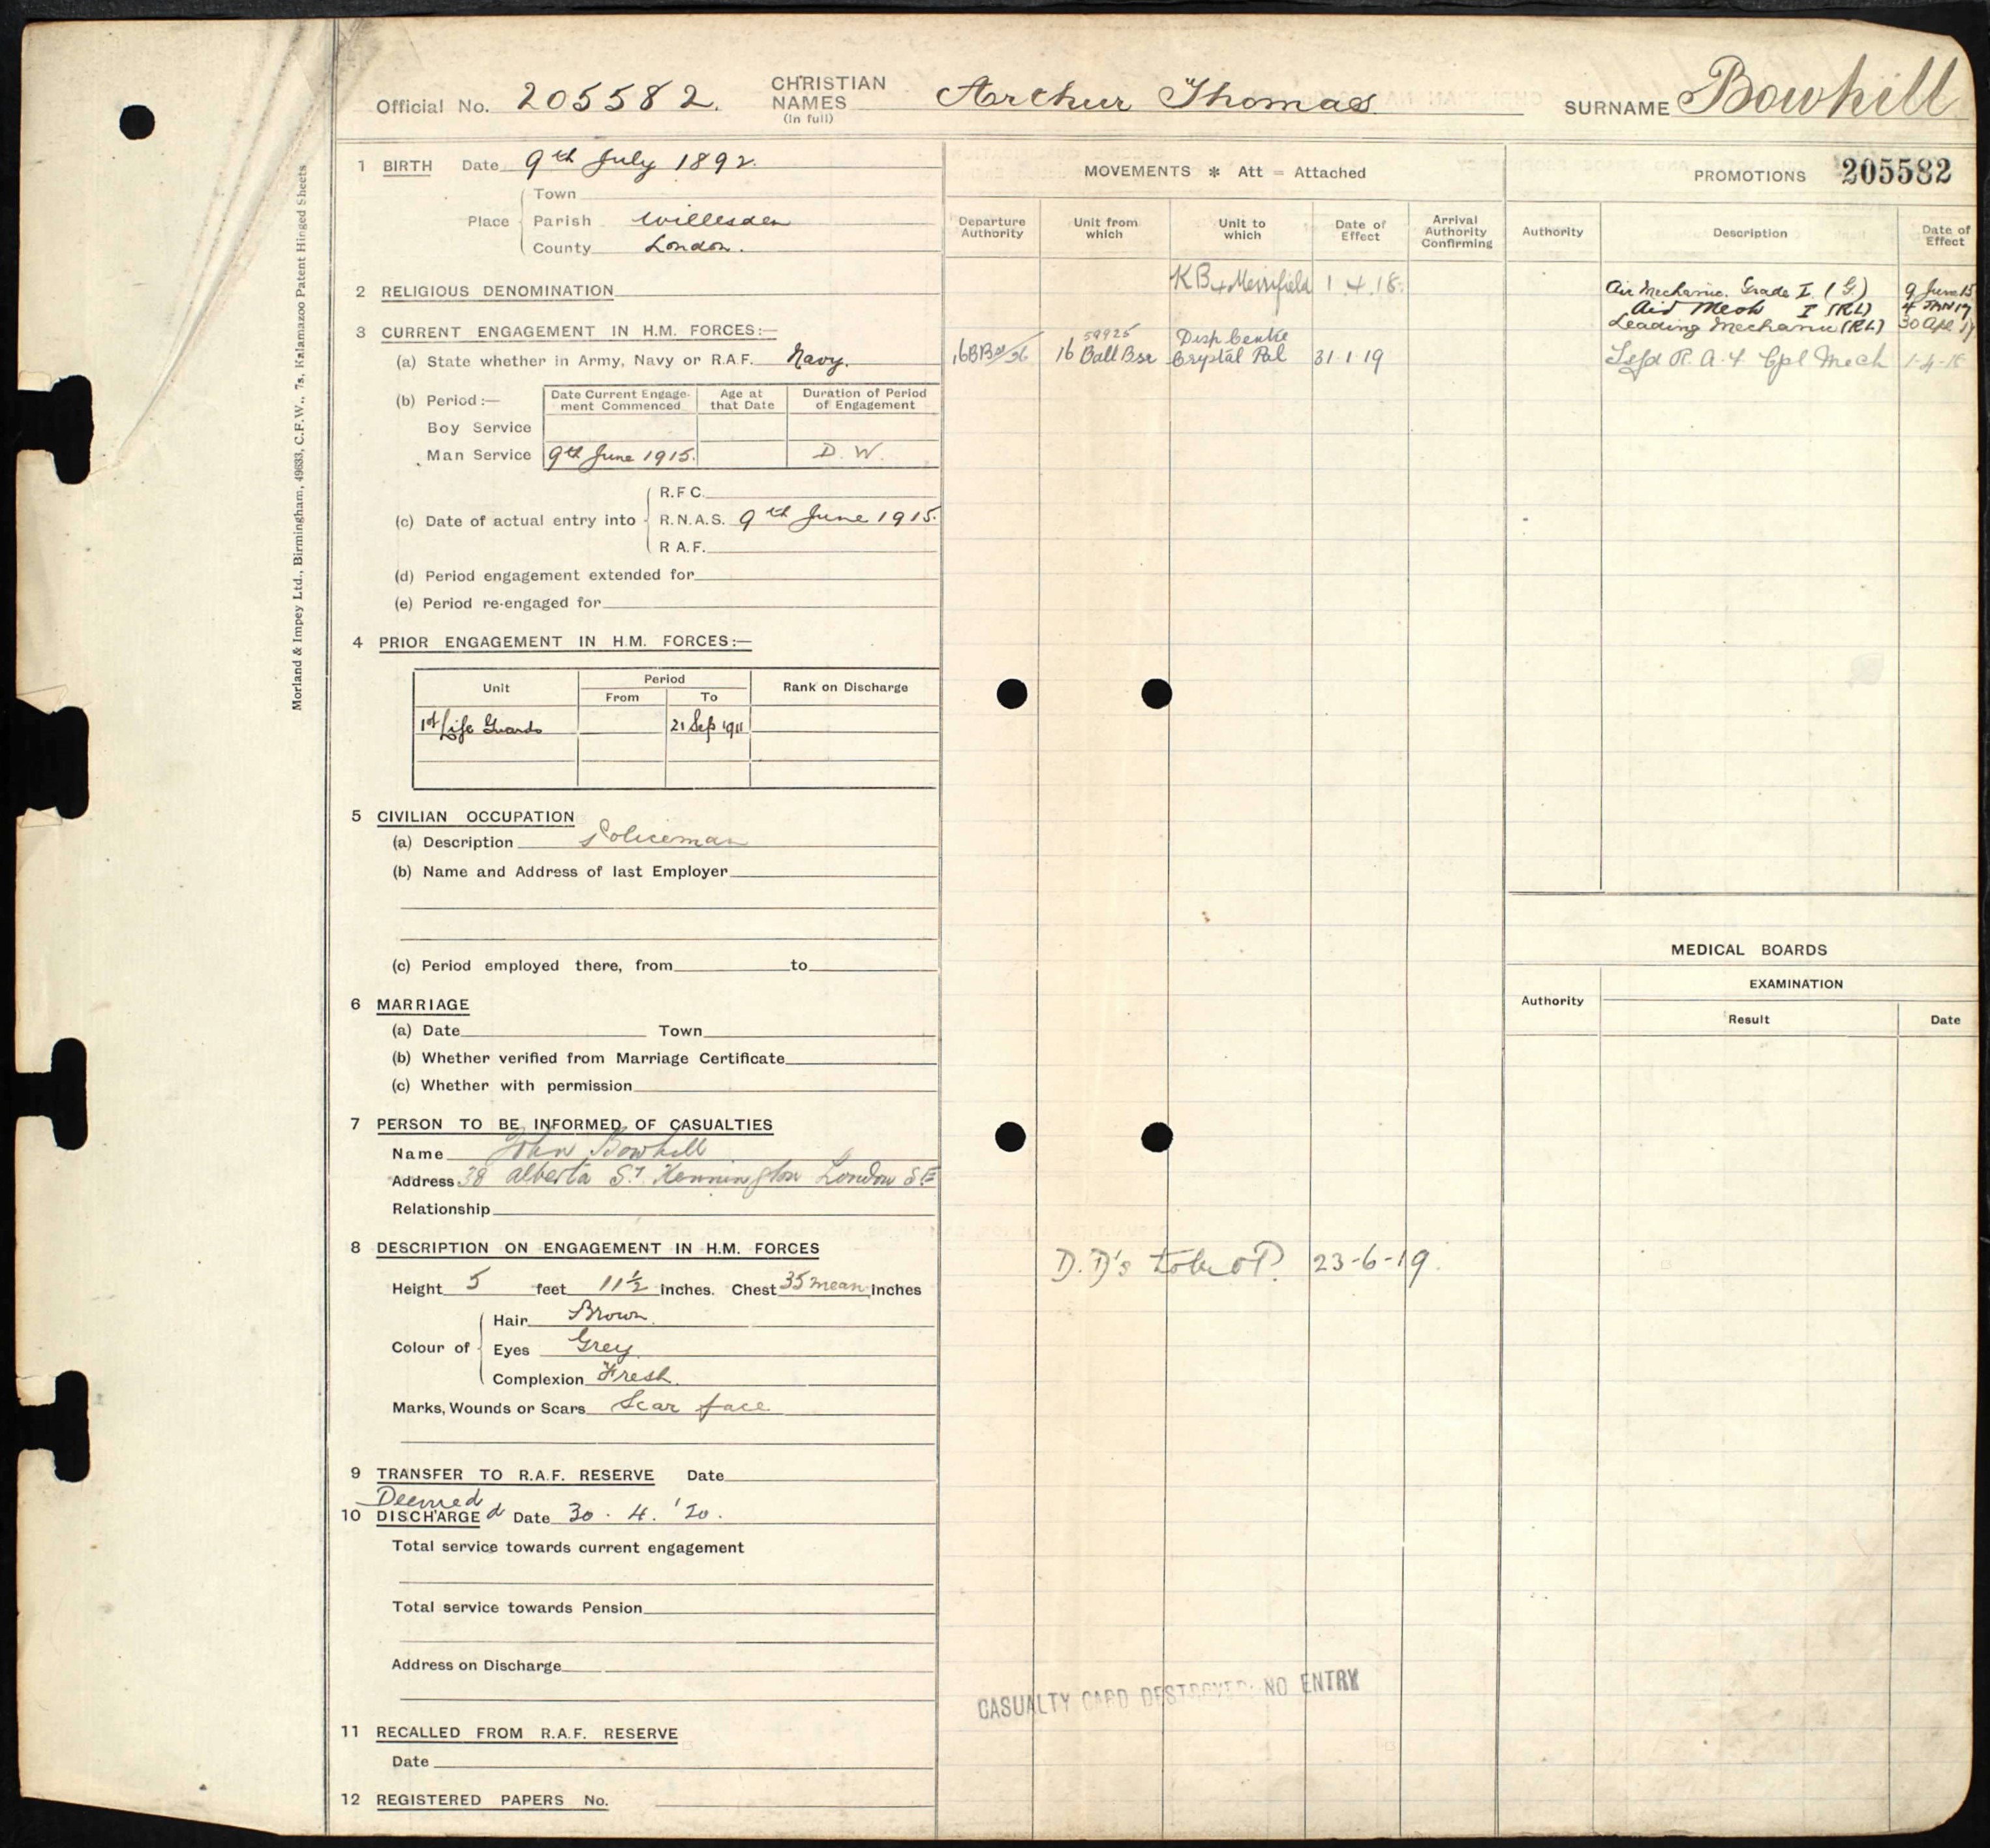 Official No. 205582. CHRISTIAN NAMES (in full) Arthur Thomas SURNAME Bowhill
Morland & Impey Ltd., Birmingham, 49633, C.F.W., 7s, Kalamazoo Patent Hinged Sheets
1 BIRTH Date 9th July 1892.
Town
Place Parish Willesden
County London.
2 RELIGIOUS DENOMINATION
3 CURRENT ENGAGEMENT IN H.M. FORCES:—
(a) State whether in Army, Navy or R.A.F. Navy.
(b) Period:— Date Current Engagement Commenced Age at that Date Duration of Period of Engagement
Boy Service
Man Service 9th June 1915. D. W.
R.F.C.
(c) Date of actual entry into R.N.A.S. 9th June 1915.
R.A.F.
(d) Period engagement extended for
(e) Period re-engaged for
4 PRIOR ENGAGEMENT IN H.M. FORCES:—
Unit Period Rank on Discharge
From To
1st Life Guards 21 Sep 1911
5 CIVILIAN OCCUPATION
(a) Description Policeman
(b) Name and Address of last Employer
(c) Period employed there, from to
6 MARRIAGE
(a) Date Town
(b) Whether verified from Marriage Certificate
(c) Whether with permission
7 PERSON TO BE INFORMED OF CASUALTIES
Name John Bowhill
Address 38 Alberta St Kennington London SE
Relationship
8 DESCRIPTION ON ENGAGEMENT IN H.M. FORCES
Height 5 feet 11½ inches. Chest 35 mean inches
Hair Brown.
Colour of Eyes Grey.
Complexion Fresh.
Marks, Wounds or Scars Scar face
9 TRANSFER TO R.A.F. RESERVE Date
Deemed
10 DISCHARGE d Date 30. 4. '20.
Total service towards current engagement
Total service towards Pension
Address on Discharge
11 RECALLED FROM R.A.F. RESERVE
Date
12 REGISTERED PAPERS No.
MOVEMENTS * Att = Attached
Departure Authority Unit from which Unit to which Date of Effect Arrival Authority Confirming
KB Merrifield 1.4.18.
59925 Disp Centre
16 Ball Bse Crystal Pal 31.1.19
D.D's 23-6-19.
CASUALTY CARD DESTROYED: NO ENTRY
PROMOTIONS 205582
Authority Description Date of Effect
Air Mechanic. Grade I. (G) 9 June 15
Air Mech I (RL) 4 JAN 17
Leading Mechanic (RL) 30 Apl 17
R.A.F. Cpl Mech 1-4-18
MEDICAL BOARDS
Authority EXAMINATION
Result Date